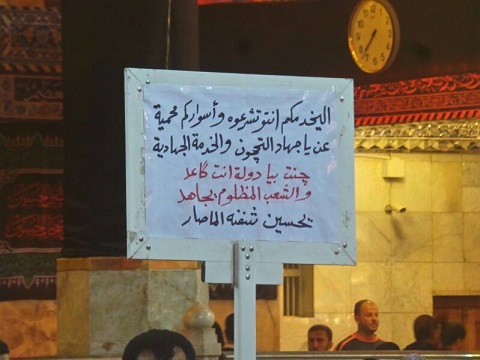 اليخدمكم انتو تشرعوه وأسواركم محمية
عن ياجهاد التحچون والخدمة الجهادية
چنت بيا دولة انت گاعد
والشعب المظلوم يجاهد
يحسين شفنه الماصار